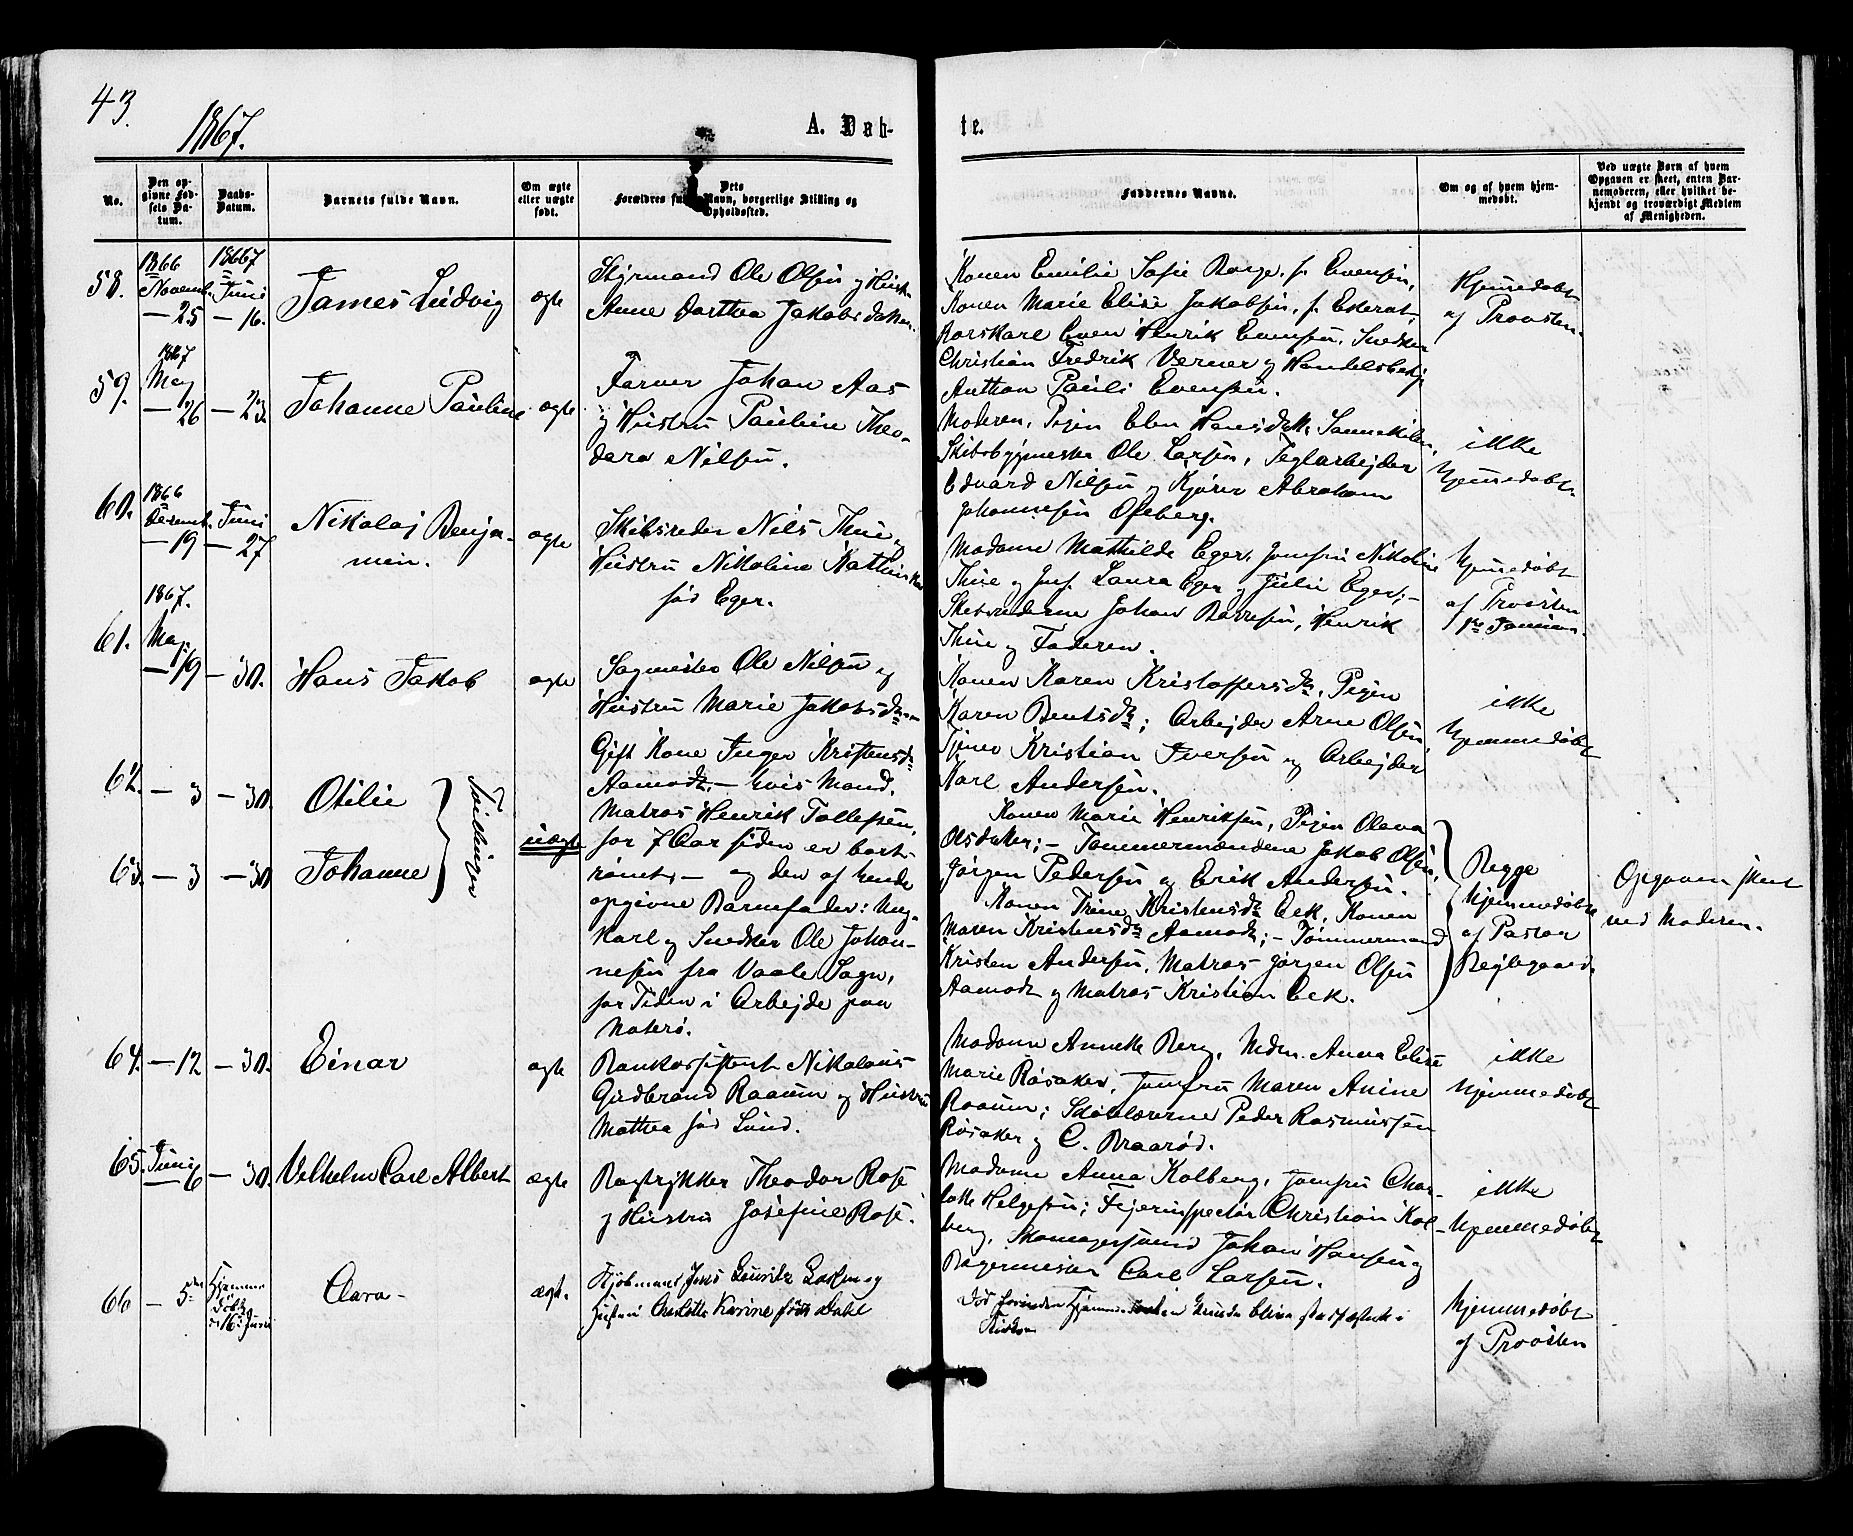 43.
1867.
A. Døb-
te.
No.
Den op-
givne Fød-
sels Da-
tum.
Daabs-
Datum.
Barnets fulde Navn.
Om ægte
eller uægte
født.
Dets
Forældres fulde Navn, borgerlige Stilling og
Opholdssted.
Faddernes Navne.
Om og af hvem hjem-
medøbt.
Ved uægte Børn af hvem
Opgaven er skeet, enten Bar-
nemoderen, eller hvilket be-
kjendt og troværdigt Medlem
af Menigheden.
58.
1866
Novemb.
— 25
1867
Juni
— 16.
James Ludvig
ægte
Styrmand Ole Olsen og Hustr.
Anne Dorthea Jakobsdatter.
Konen Emilie Sofie Borge, f. Evensen,
Konen Marie Elise Jakobsen, f.
Even Henrik Evensen, Snedker
Christian Fredrik Verner og
Anthon Pauli Evensen.
Hjemmedøbt
af Provsten.
59.
1867
May
— 26
— 23.
Johanne Pauline
ægte
Farver Johan Aas
og Hustru Pauline Theo-
dora Nilsen.
Moderen, Pigen Elen Hansdatter
Skibsbygmester Ole Larsen, Teglarbejder
Edvard Nilsen og Kjører Abraham
Johannesen Ofeberg.
ikke
hjemmedøbt.
60.
1866
Decemb.
— 19
Juni
— 27
Nikolaj Benja-
min.
ægte
Skibsreder Nils Thue
Hustru Nikoline
født Eger.
Madame Mathilde Eger, Jomfru Nikoline
Thue og Jmf. Laura Eger og Julie Eger; —
Skibsrederne Johan Henrik
Thue og Faderen.
hjemmedøbt
af Provsten
61.
1867.
May
— 19
— 30.
Hans Jakob
ægte
Sagmester Ole Nilsen og
Hustru Marie Jakobsdtr.
Konen Karen Kristoffersdtr, Pigen
Karen Bentsdtr; Arbejder Arne Olsen,
Tjener Kristian Iversen og Arbejder
Karl Andersen.
ikke
hjemmedøbt
62.
— 3
— 30.
Otilie
63.
— 3
— 30
Johanne
Tvillinger
uægte
Gift Kone Inger Kristensdtr
Aamodt. — hvis Mand,
Matros Henrik Tollefsen,
for 7 Aar siden er bort-
rømt, — og den af hende
opgivne Barnefader: Ung-
karl og Snedker Ole Johan-
nesen fra Vaale Sogn,
for Tiden i Arbejde paa
Nøterø.
Konen Marie Henriksen, Pigen Olava
Olsdatter; — Tømmermændene Jakob Olsen,
Jørgen Pedersen og Erik Andersen.
Konen Trine Kristensdtr Eek, Konen
Maren Kristensdtr Aamodt; — Tømmermand
Kristen Andersen, Matros Jørgen Olsen
Aamodt og Matros Kristian Eek.
Begge
hjemmedøbt
af Pastor
Bejlegaard.
Opgaven skeet
ved Moderen.
64.
— 12
— 30.
Einar
ægte
Bankassistent Nikolaus
Gudbrand Raaum og Hustru
Mathea født Lund.
Madame Annette Berg, Mdm. Anna Elise
Marie Røsaker, Jomfru Maren Anine
Raaum; Skolelærerne Peder Rasmussen
Røsaker og C. Braarød.
ikke
hjemmedøbt
65.
Juni
— 6
— 30.
Vilhelm Carl Albert
ægte
Bogtrykker Theodor Rose
og Hustru Josefine Rose.
Madame Anna Kolberg, Jomfru Char-
lotte Helgesen; Fyrinspector Christian Kol-
berg, Skomagersvend Johan Hansen og
Bagermester Carl Larsen.
ikke
hjemmedøbt
66
— 5te
Hjemme
døbt
16 Juni
Clara —
ægte.
Kjøbmand Jens Lauritz og
Hustru Charlotte Karine født Dahl
Død forinden i
Kirken
hjemmedøbt
af Provsten